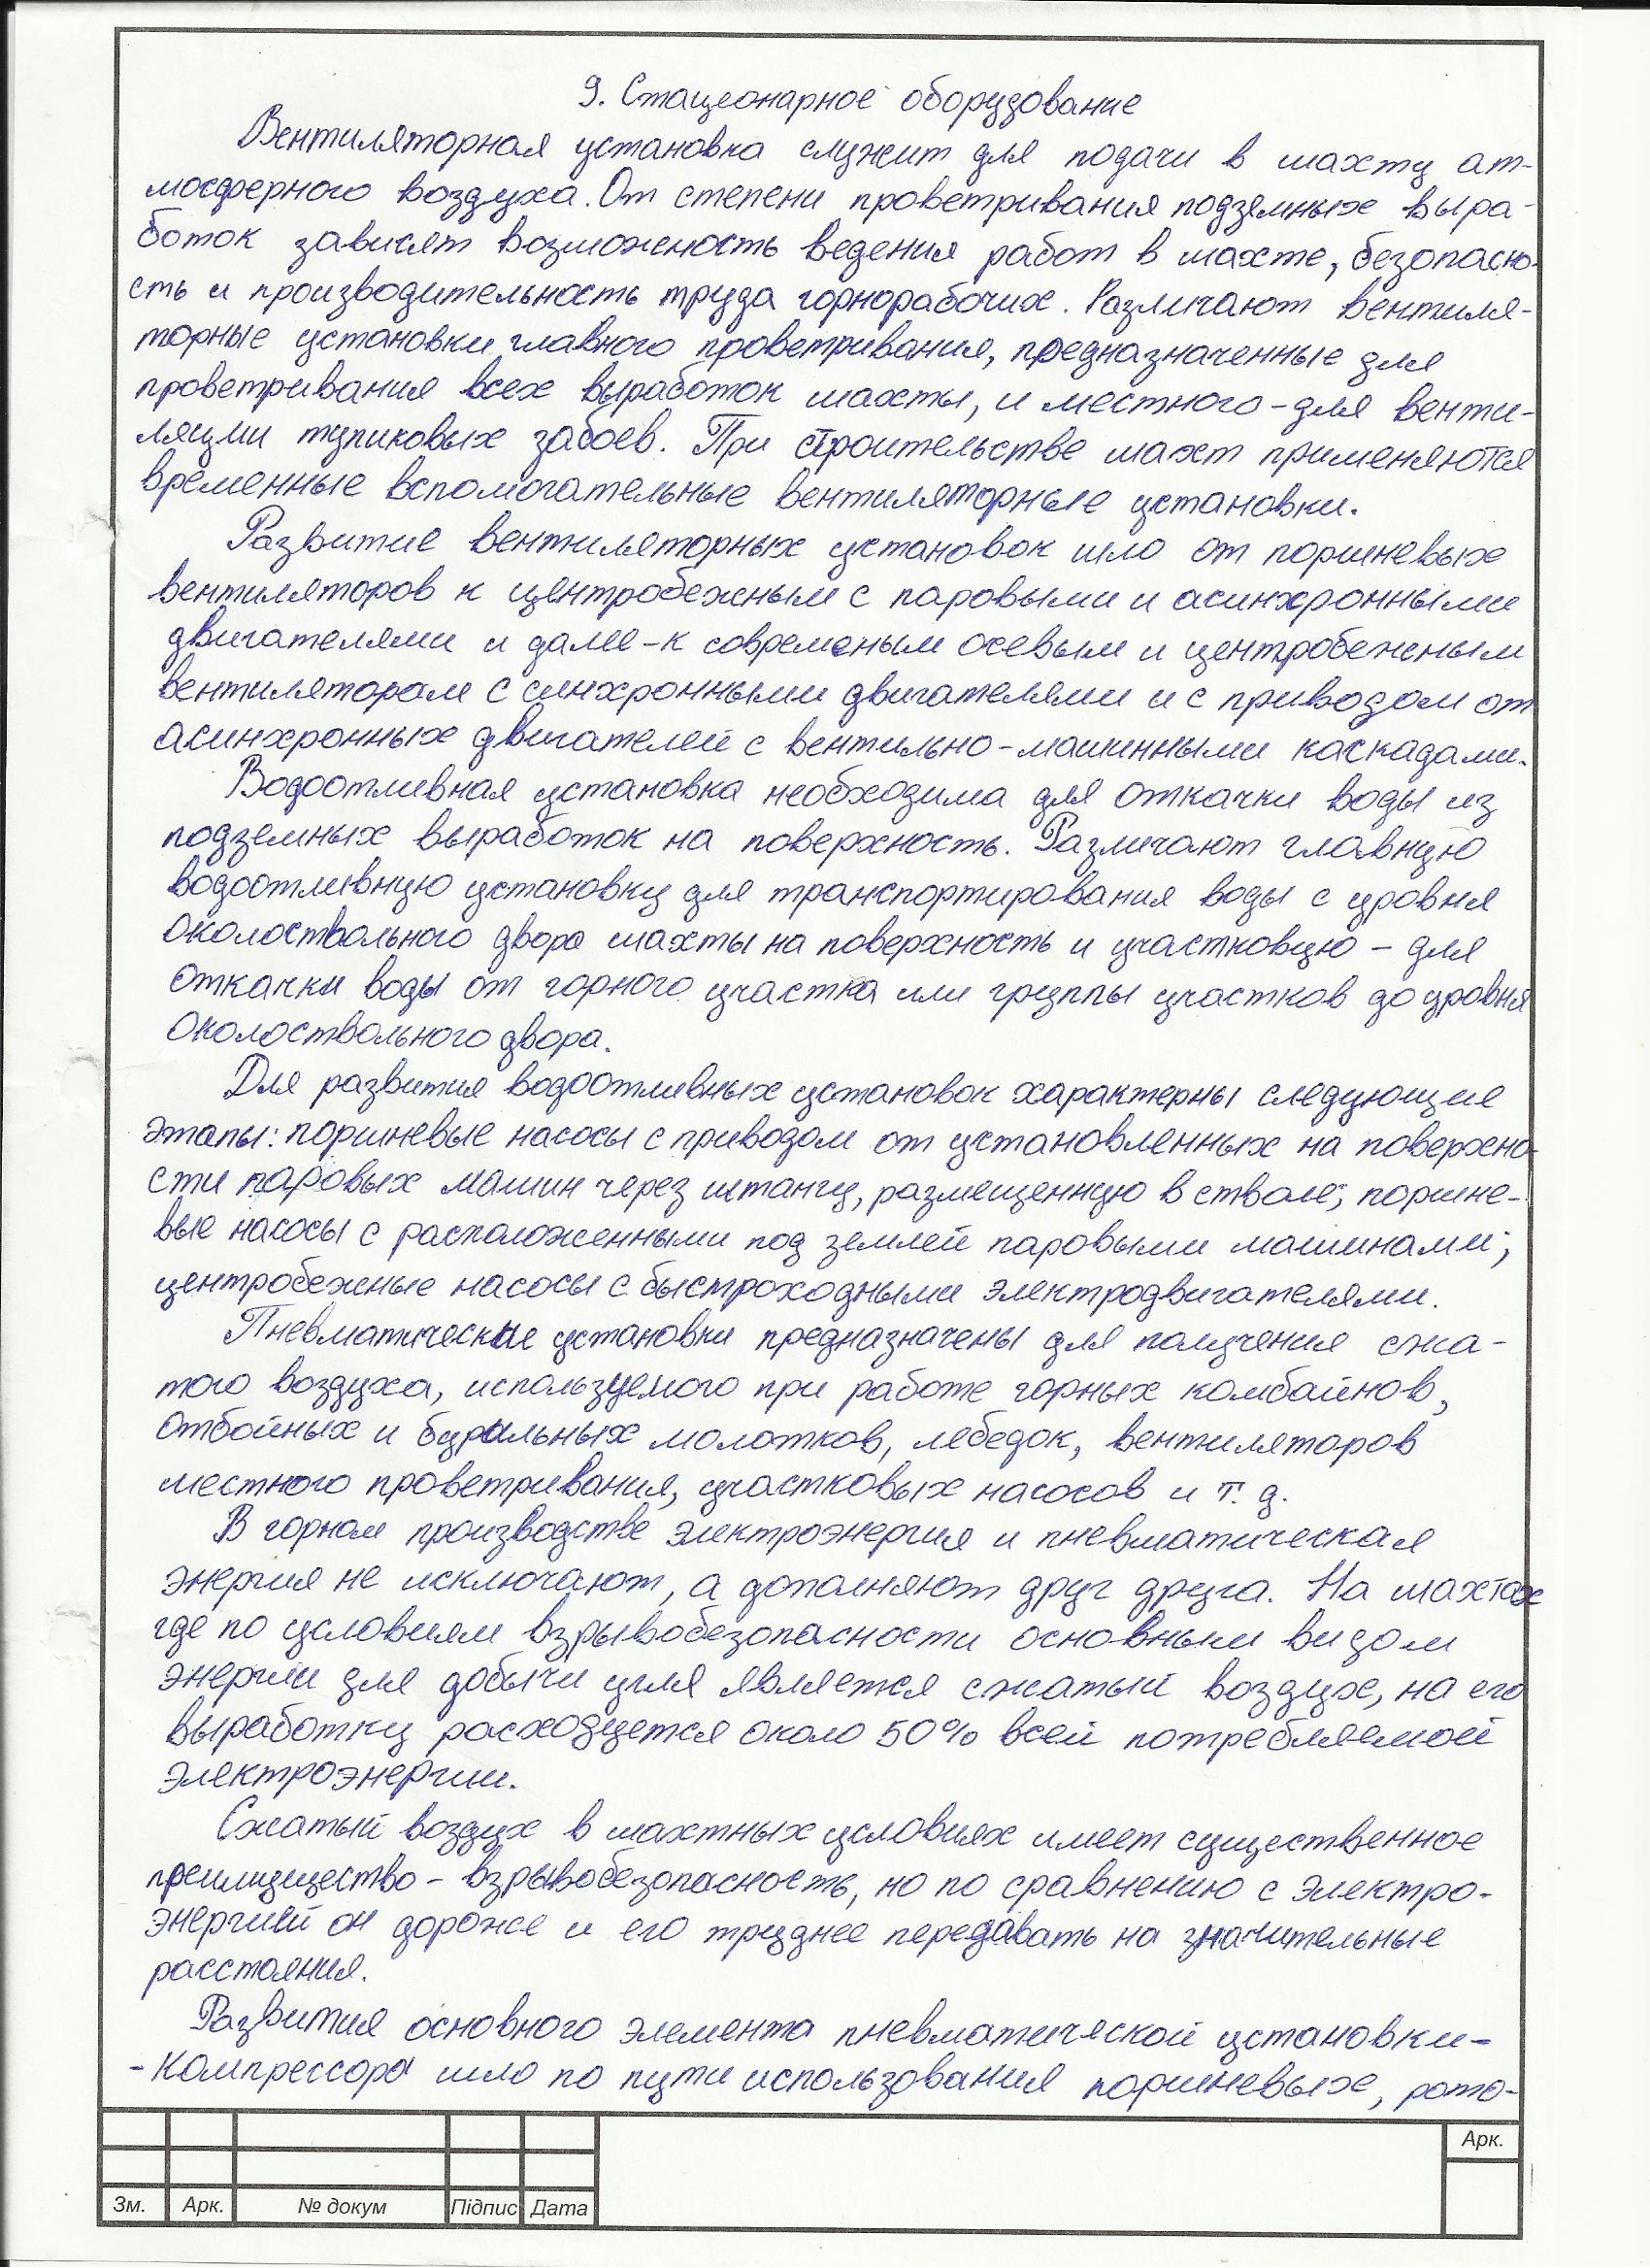 9. Стационарное оборудование
Вентиляторная установка служит для подачи в шахту ат-
мосферного воздуха. От степени проветривания подземных выра-
боток зависят возможность ведения работ в шахте, безопасно-
сть и производительность труда горнорабочих. Различают вентиля-
торные установки главного проветривания, предназначенные для
проветривания всех выработок шахты, и местного-для венти-
ляции тупиковых забоев. При строительстве шахт применяются
временные вспомогательные вентиляторные установки.
Развитие вентиляторных установок шло от поршневых
вентиляторов к центробежным с паровыми и асинхронными
двигателями и далее-к современым осевым и центробежным
вентиляторам с синхронными двигателями и с приводом от
асинхронных двигателей с вентильно-машинными каскадами.
Водоотливная установка необходима для откачки воды из
подземных выработок на поверхность. Различают главную
водоотливную установку для транспортирования воды с уровня
околоствольного двора шахты на поверхность и участковую - для
откачки воды от горного участка или группы участков до уровня
околоствольного двора.
Для развития водоотливных установок характерны следующие
этапы: поршневые насосы с приводом от установленных на поверхно-
сти паровых машин через штангу, размещенную в стволе; поршне-
вые насосы с расположенными под землей паровыми машинами;
центробежные насосы с быстроходными электродвигателями.
Пневматические установки предназначены для получения сжа-
того воздуха, используемого при работе горных комбайнов,
отбойных и бурильных молотков, лебедок, вентиляторов
местного проветривания, участковых насосов и т. д.
В горном производстве электроэнергия и пневматическая
энергия не исключают, а дополняют друг друга. На шахтах
где по условиям взрывобезопасности основным видом
энергии для добычи угля является сжатый воздух, на его
выработку расходуется около 50% всей потребляемой
электроэнергии.
Сжатый воздух в шахтных условиях имеет существенное
преимущество - взрывобезопасность, но по сравнению с электро-
энергией он дороже и его труднее передавать на значительные
расстояния.
Развития основного элемента пневматической установки-
-компрессора шло по пути использования поршневых, рото-
Арк.
Зм. Арк. № докум Підпис Дата